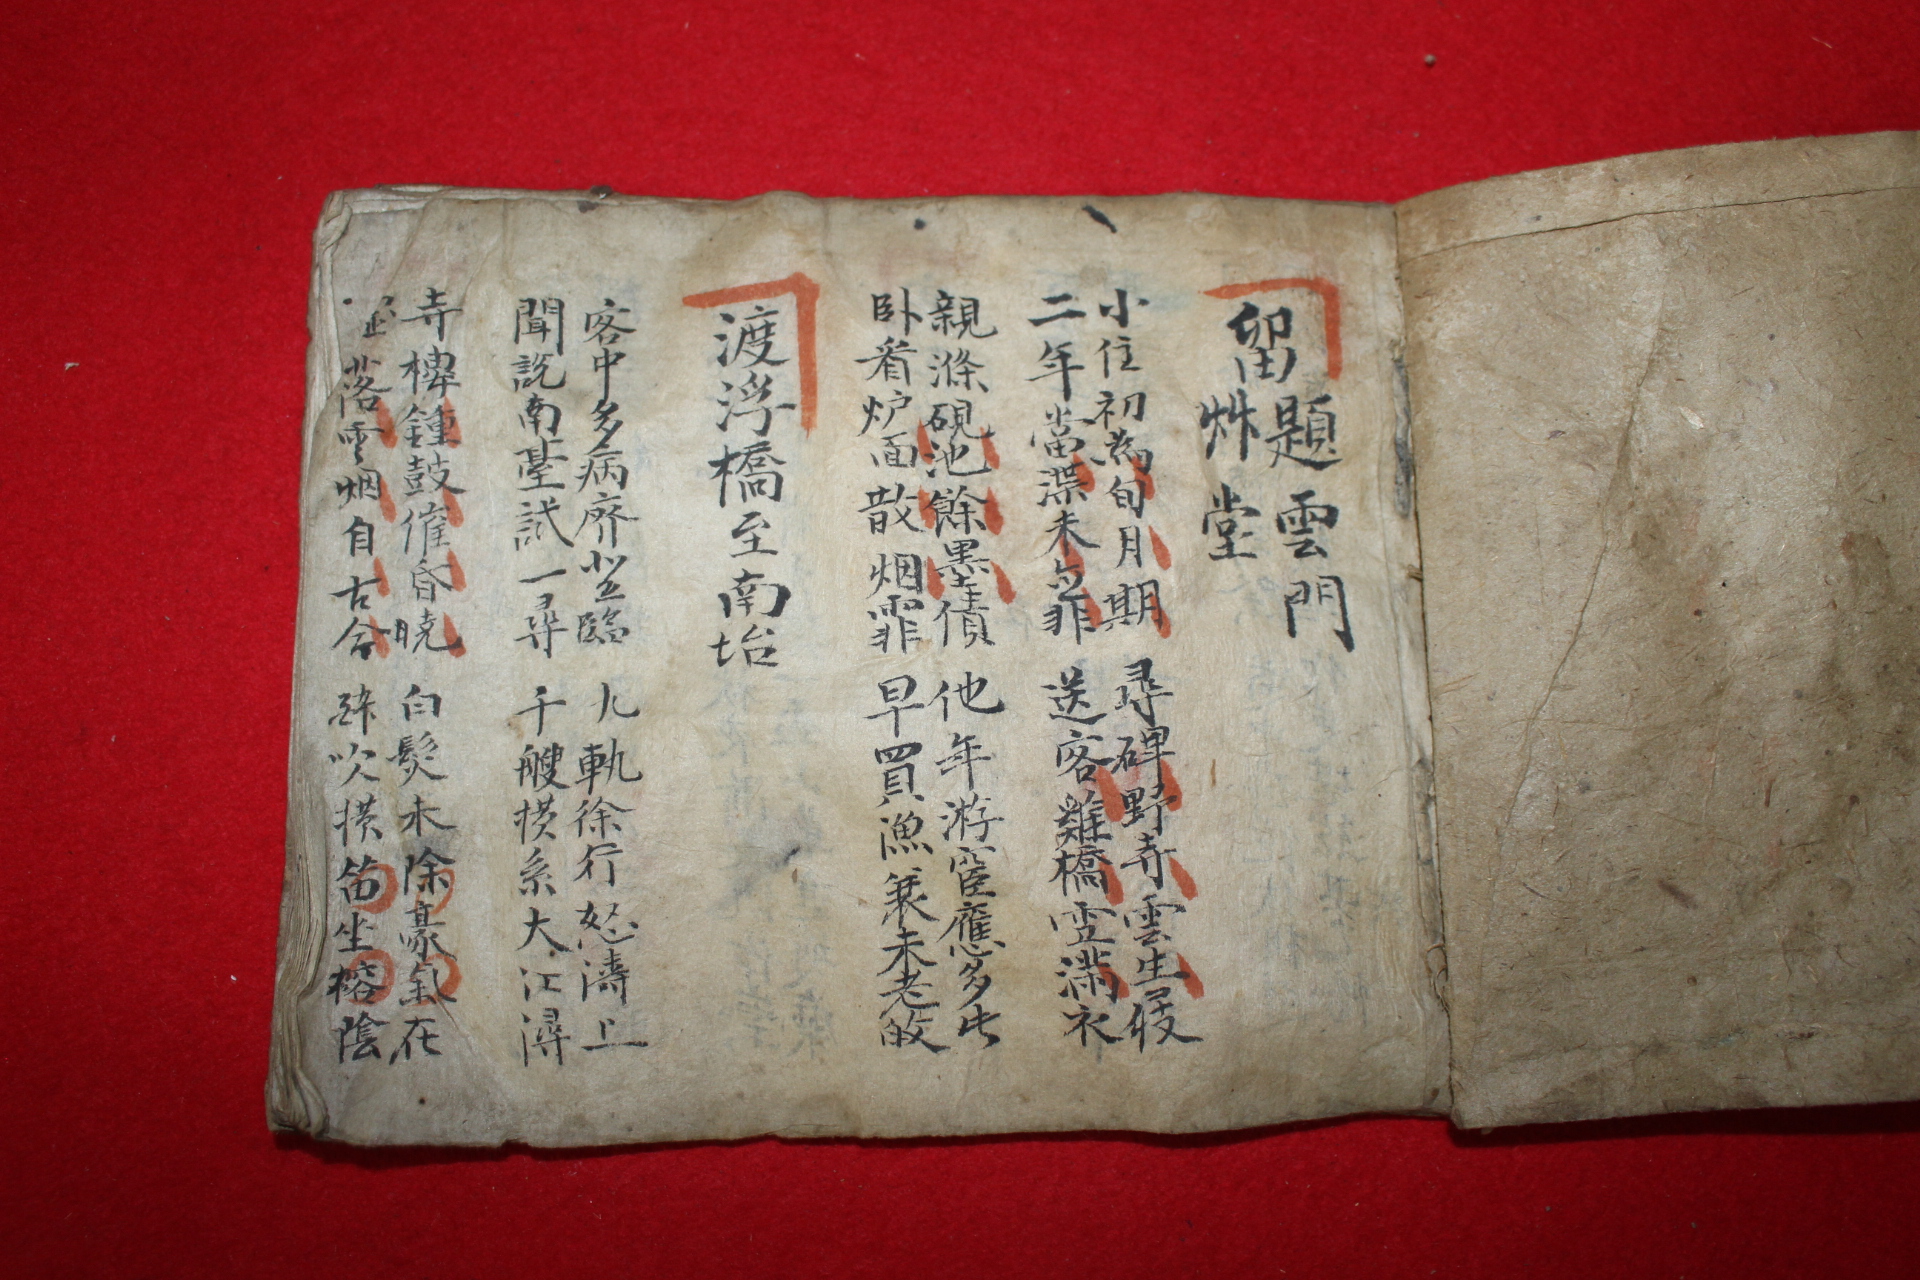 留題雲門艸堂
小住初為旬月期 尋碑野寺雲生屐
二年當滯未必非 送客雞橋雪滿衣
親滌硯池餘墨債 他年游宦應多此
卧看炉面散烟霏 早買漁蓑未老皈
渡浮橋至南坮
客中多病廃登臨 九軌徐行怒濤上
聞説南臺試一尋 千艘横系大江潯
寺樓鍾鼓催昏曉 白髮未除豪氣在
墟落雲烟自古今 醉吹横笛坐榕陰